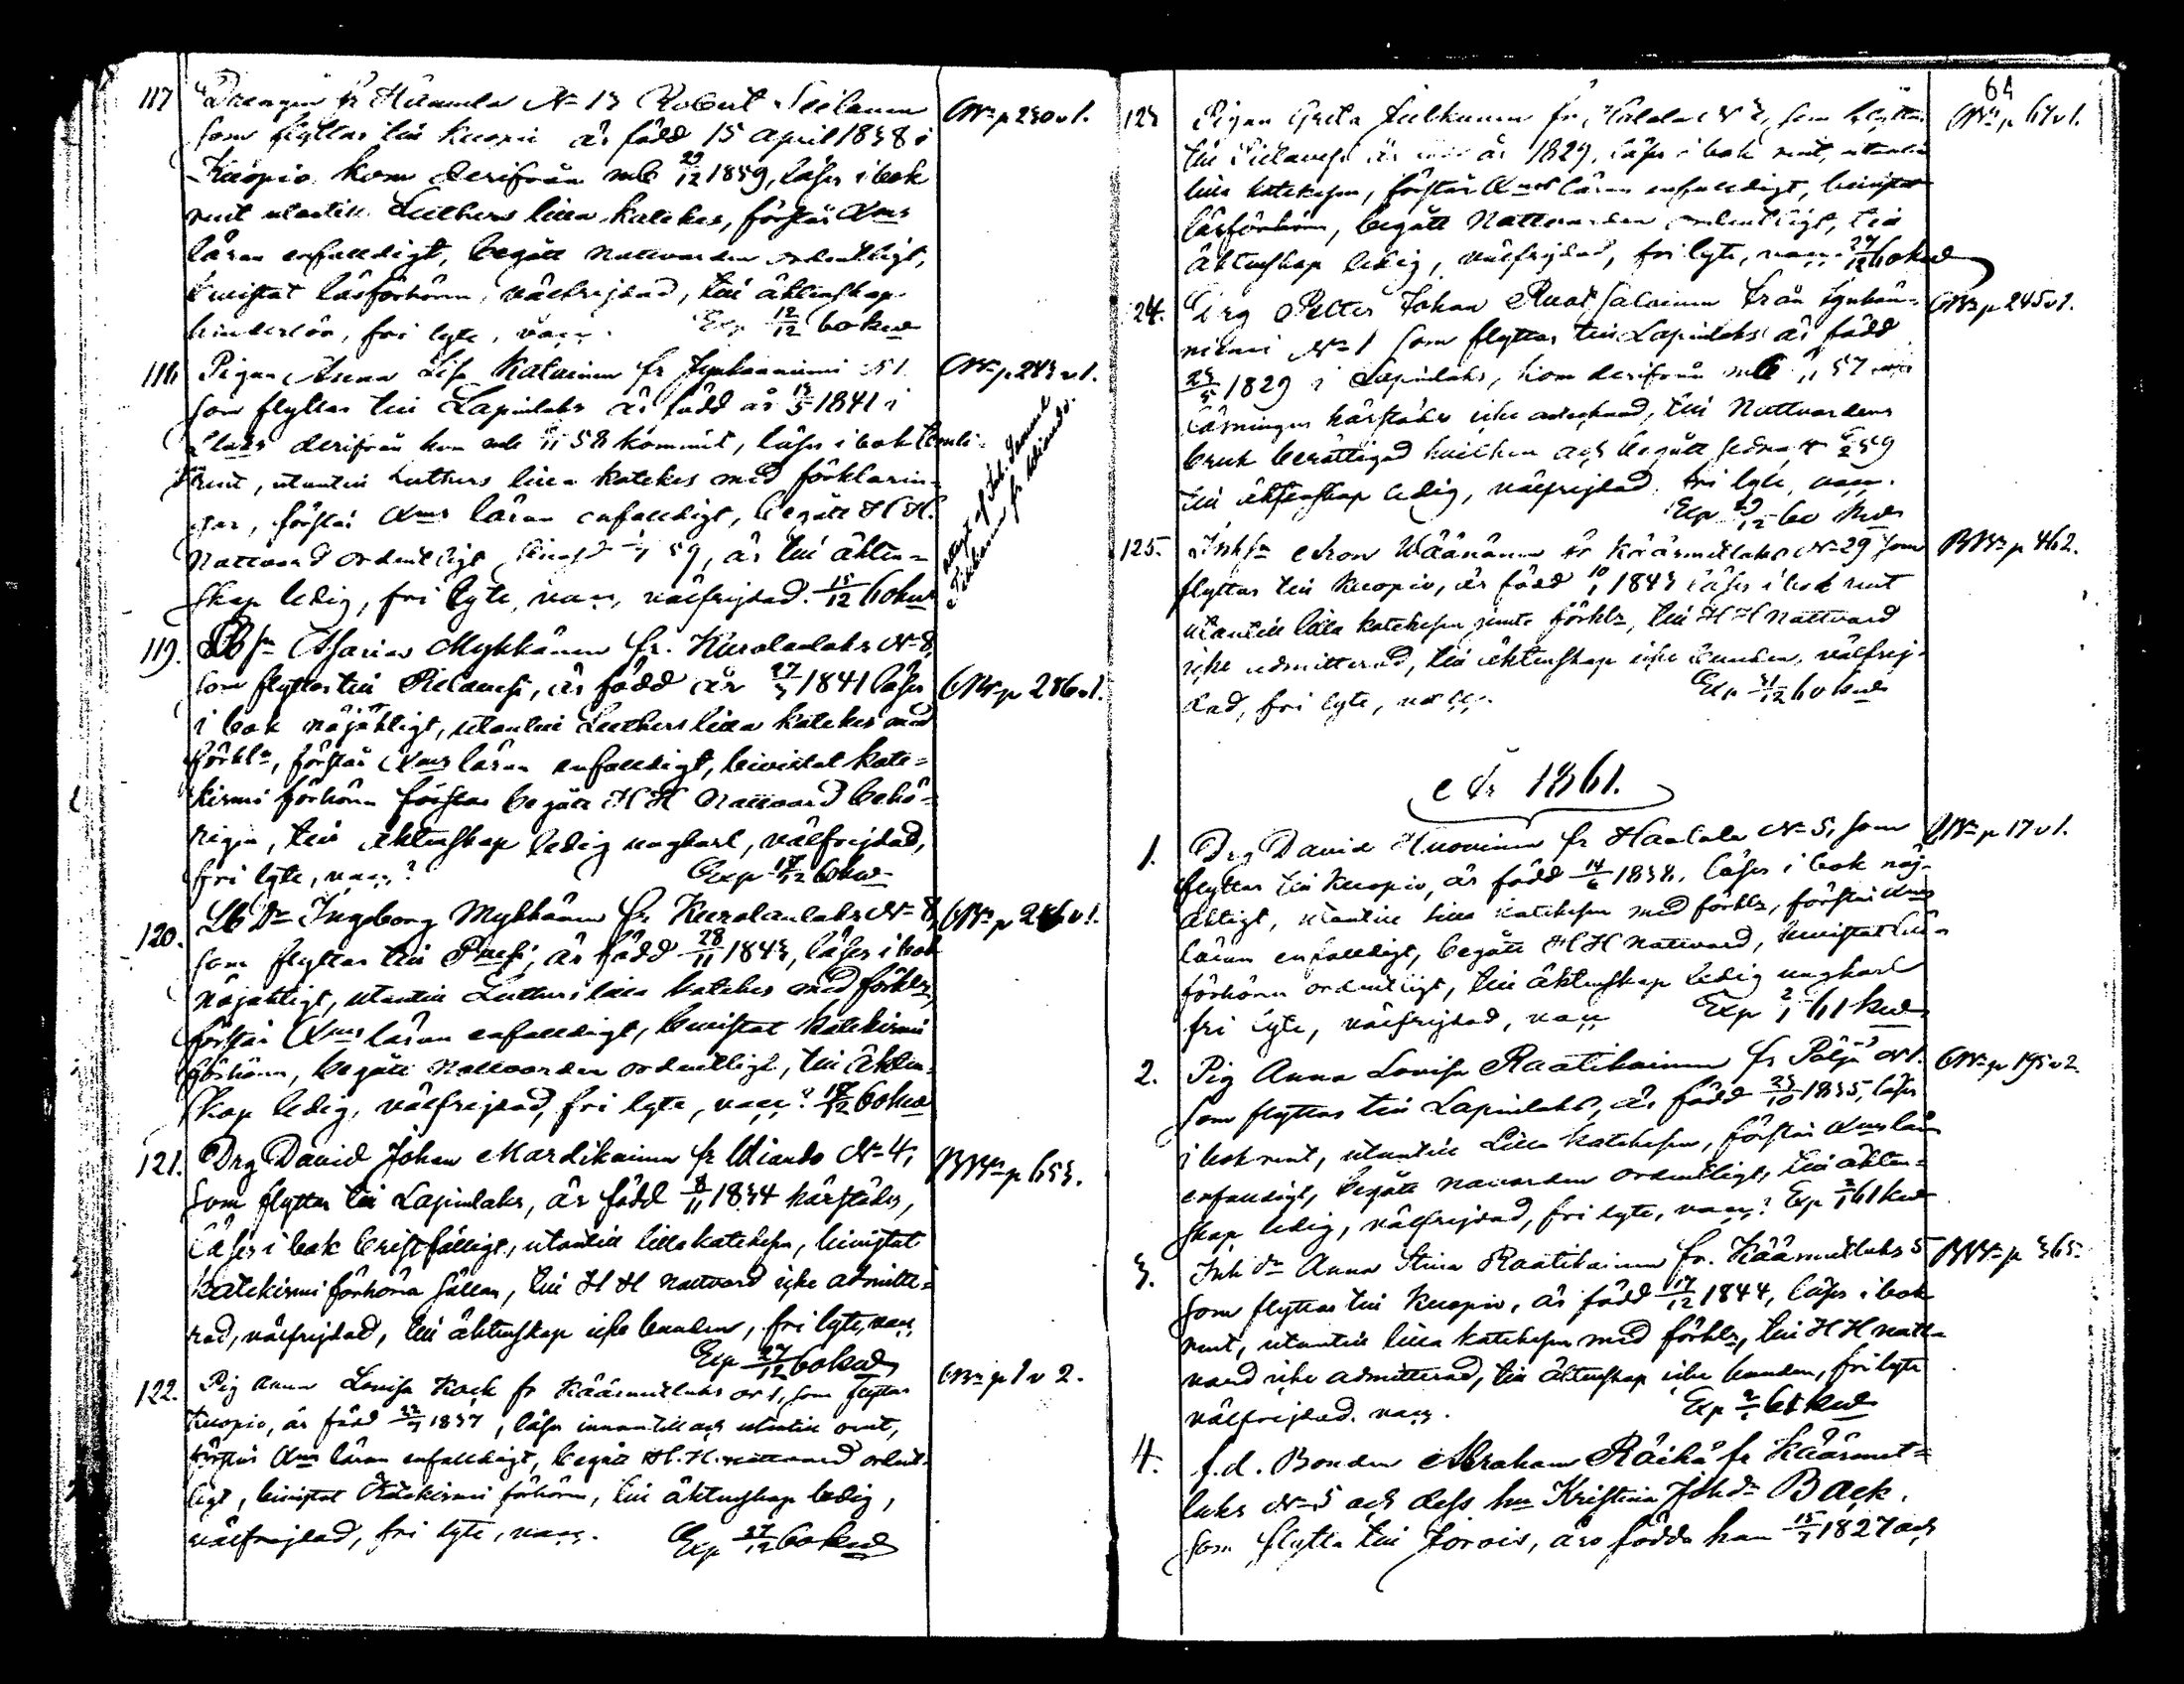 117 Drengen fr Hirmula N 13 Robert Siilanen CBr p 230 v 1.
som flyttar till Kuopio är född 15 april 1838 i
Kuopio kom derifrån mb 29/12 1859, läser i bok
rent utantill Luthers lilla katekes, förstår Xns
läran enfalldigt, begått nattvarden ordentligt,
bevistat läsförhören, välfrejdad, till äktenskap
hinderlös, fri lyte, vacc. Exp 12/12 60 kwd
118 Pigan Anna Lisa Kalainen fr Jynkänniemi N 1. CBr p 243 v 1.
som flyttar till Lapinlaks är född år 1841 i
Llaks derifrån hon mb 58 kommit, läser i bok temli-
rent, utantill Luthers lilla katekes med förklarin-
gar, förstår Xns läran enfalldigt, begått H H.
Nattvard ordentligt 59, är till äkten-
skap ledig, fri lyte, vacc, välfrejdad. 15/12 60 kwd
119. Lb sn Mykkänen fr. Kurolanlaks N 8,
som flyttar till Pielavesi, är född år 27/3 1841 läser CBr p 286 v 1.
i bok nöjaktigt, utantill Luthers lilla katekes med
förkl., förstår Xns läran enfalldigt, bevistat kate-
kismi förhören förstår begått H H Nattvard behö-
rigen, till äktenskap ledig ungkarl, välfrejdad,
fri lyte, vacc? Exp 17/12 60 kwd
120. Lb Dr Ingeborg Mykkänen fr Kurolanlaks N 8, CBr p 286 v 1.
som flyttar till Pvesi, är född 28/11 1843, läser i bok
nöjaktigt, utantill Luthers lilla katekes med förkl.,
förstår Xns läran enfalldigt, bevistat katekismi
förhören, begått nattvarden ordentligt, till äkten-
skap ledig, välfrejdad, fri lyte, vacc? 17/12 60 kwd
121. Drg David Johan Mardikainen fr Wiando N 4, BBr p 653.
som flyttar till Lapinlaks, är född 8/11 1834 härstädes,
läser i bok bristfälligt, utantill lilla katekesen, bevistat
katekismi förhören sällan, till H H nattvard icke admitte-
rad, välfrejdad, till äktenskap icke bunden, fri lyte, vacc.
Exp 27/12 60 kwd
122. Pig Anna Lovisa Kock fr Käärmetlaks N 1, som flyttar CBr p 1 v 2.
Kuopio, är född 22/7 1837, läser innantill och utantill rent,
förstår Xns läran enfalldigt, begått H. H. nattvard ordent-
ligt, bevistat Katekismi förhören, till äktenskap ledig,
välfrejdad, fri lyte, vacc. Exp 27/12 60 kwd
64
123 Pigan Greta fr, som flyttar CBr p 67 v 1.
till Pielavesi är år 1829, läser i bok rent, utantill
lilla katekesen, förstår Xns läran enfalldigt, bevistat
läsförhören, begått Nattvarden ordentligt, till
äktenskap ledig, välfrejdad, fri lyte, vacc. 27/12 60 kwd
24. Drg Petter Johan Ruotsalainen från Jynkän- CBr p 245 v 1.
niemi N 1 som flyttar till Lapinlaks är född
23/5 1829 i Lapinlaks, kom derifrån mb 57
läsningen härstädes icke antecknad, till Nattvardens
bruk berättigad hvilken och begått sednast 59
till äktenskap ledig, välfrejdad, fri lyte, vacc.
Exp 60 kwd
125. Inh sn Aron Wäänänen fr Käärmetlaks N 29 som BBr p 462.
flyttar till Kuopio, är född 10/1 1843 läser i bok rent
utantill lilla katekesen jemte förkl., till H H nattvard
icke admitterad, till äktenskap icke bunden, välfrej-
dad, fri lyte, vacc. Exp 31/12 60 kwd
År 1861.
1. Drg David Huovinen fr Haatala N 5, som CBr p 17 v 1.
flyttar till Kuopio, är född 14/6 1838. läser i bok nöj-
aktigt, utantill lilla katekesen med förkl., förstår Xns
läran enfalldigt, begått H H nattvard, bevistat läs-
förhören ordentligt, till äktenskap ledig ungkarl
fri lyte, välfrejdad, vacc Exp 2/1 61 kwd
2. Pig Anna Lovisa Raatikainen fr Pöljä N 1. CBr p 195 v 2.
som flyttar till Lapinlaks, är född 23/10 1835, läser
i bok rent, utantill Lilla katekesen, förstår Xns läran
enfalldigt, begått nattvarden ordentligt, till äkten-
skap ledig, välfrejdad, fri lyte, vacc? Exp 2/1 61 kwd
3. Inh dr Anna Stina Raatikainen fr. Käärmetlaks 5 BBr p 365.
som flyttar till Kuopio, är född 17/12 1844, läser i bok
rent, utantill lilla katekesen med förkl., till H H natt-
vard icke admitterad, till äktenskap icke bunden, fri lyte
välfrejdad. vacc. Exp 2/1 61 kwd
4. f.d. Bonden Abraham Räihä fr Käärmet-
laks N 5 och dess hu Kristina Joh dr Back.
som flytta till Jorois, äro födda han 15/7 1827 och